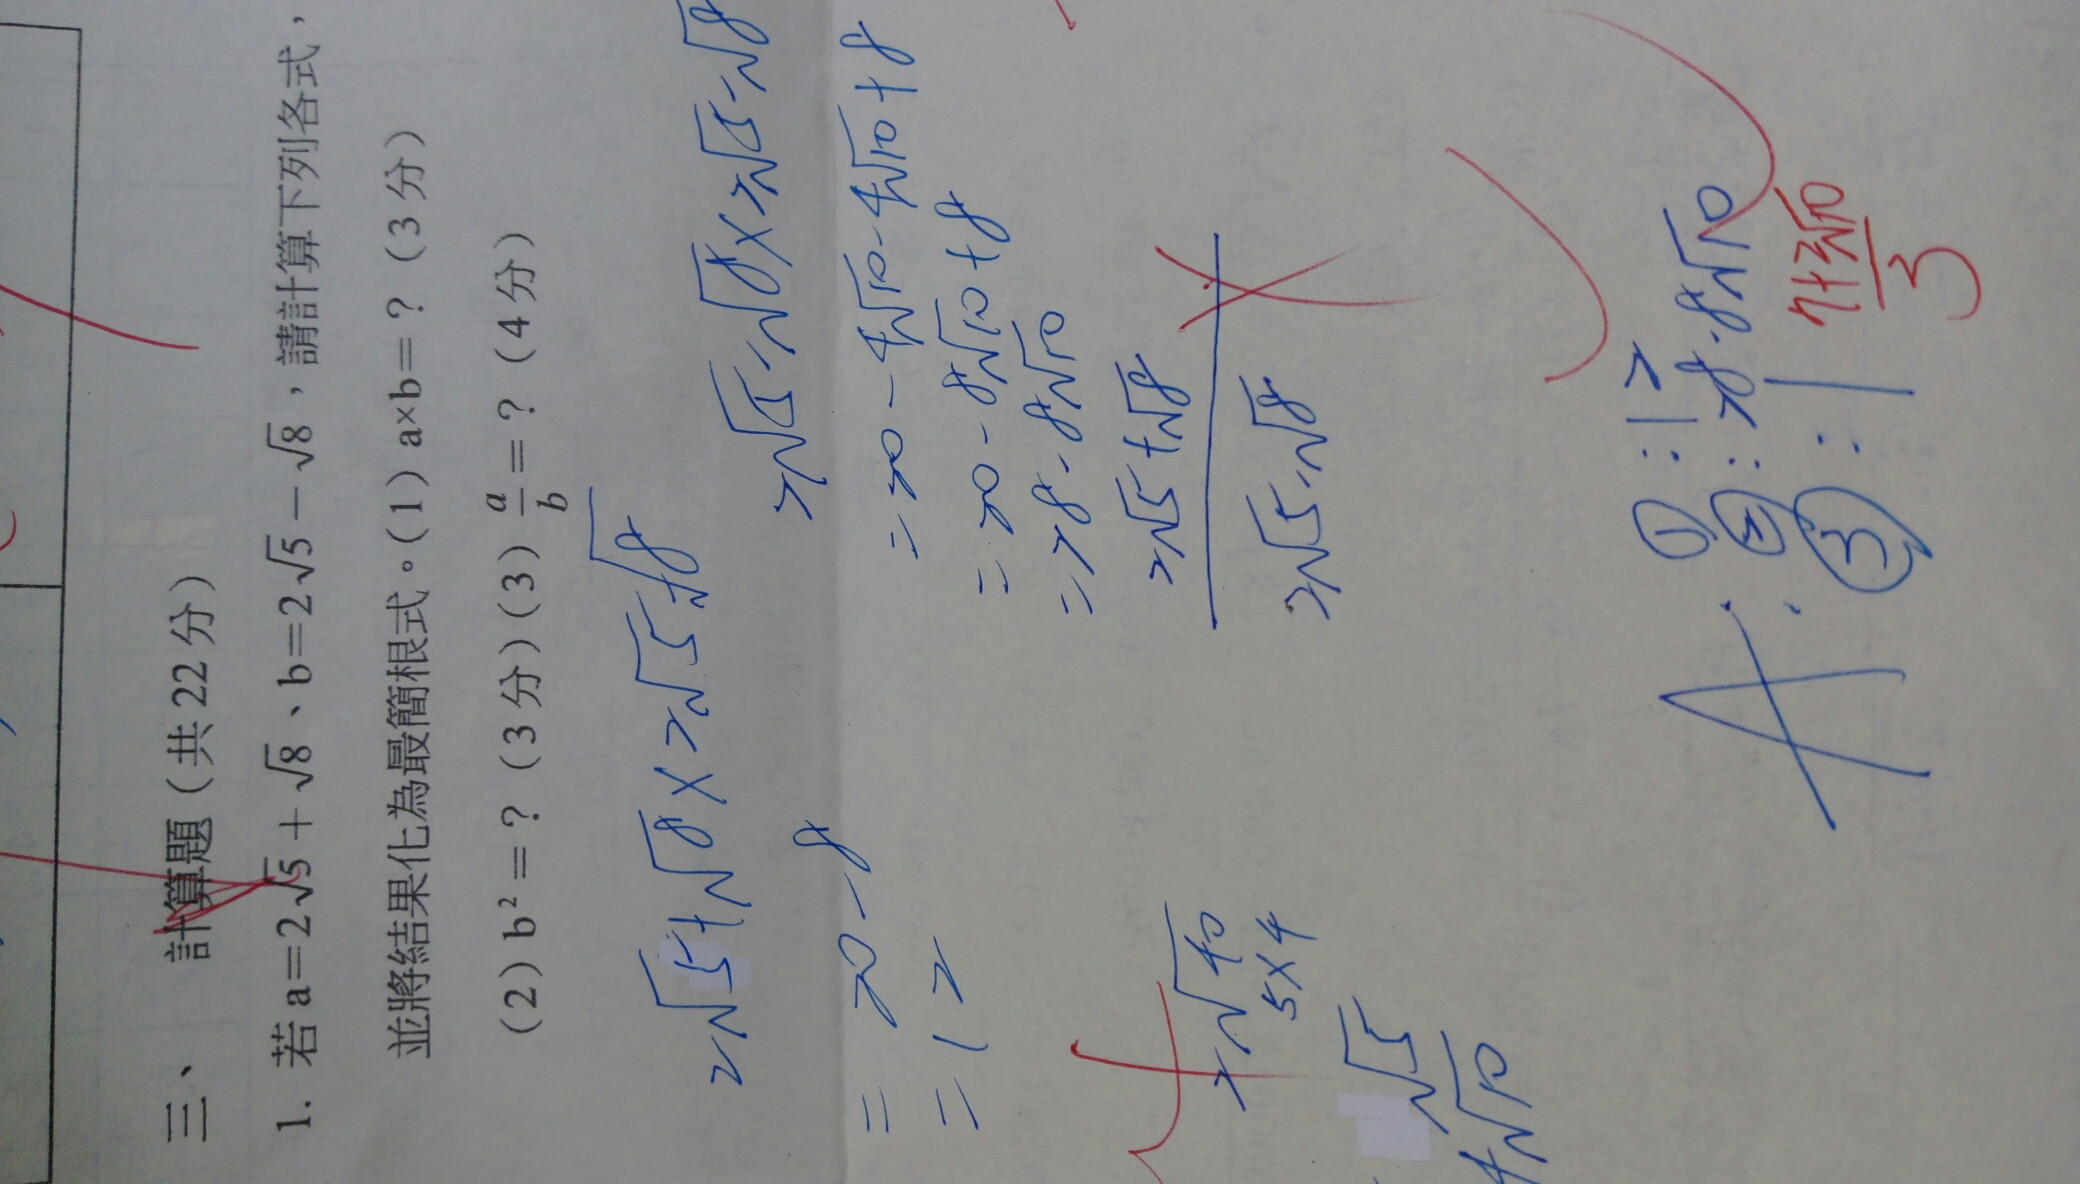 三、 計算題（共22分）
1. 若 a=2√5+√8、b=2√5−√8，請計算下列各式，
並將結果化為最簡根式。(1) a×b=？（3分）
(2) b²=？（3分）(3) a/b=？（4分）
2√5+√8×2√5-√8
=20-8
=12
2√40
5×4
√5
4√10
2√5-√8×2√5-√8
=20-4√10-4√10+8
=20-8√10+8
=28-8√10
2√5+√8
2√5-√8
A:
①:12
②:28-8√10
③:1
7+2√10
3